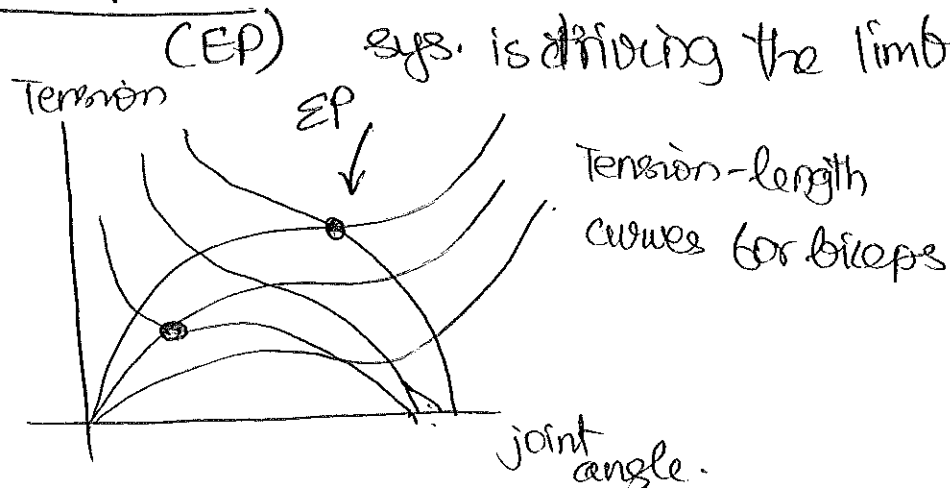 (EP) sys. is driving the limb
Tension
EP
Tension-length
curves for biceps
joint
angle.